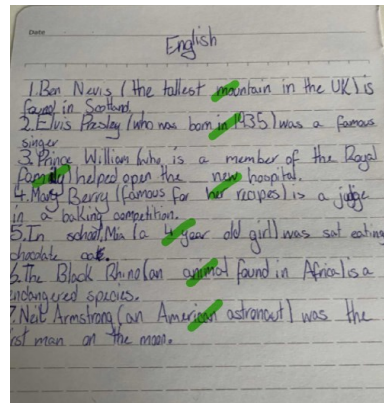 Date
English
1. Ben Nevis (the tallest mountain in the UK) is
found in Scotland.
2. Elvis Presley (who was born in 1935) was a famous
singer.
3. Prince William (who is a member of the Royal
Family) helped open the new hospital.
4. Mary Berry (famous for her recipes) is a judge
in a baking competition.
5. In school, Mia (a 4 year old girl) was sat eating
chocolate
6. The Black Rhino (an animal found in Africa) is a
endangered species.
7. Neil Armstrong (an American astronaut) was the
irst man on the moon.